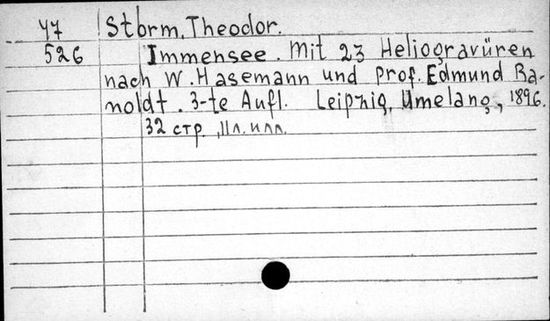 47 Storm, Theodor.
526 Immensee. Mit 23 Heliogravüren
nach W. Hasemann und Prof. Edmund Ka-
noldt. 3-te Aufl. Leipzig, Umelang, 1896.
32 стр., 11 л. илл.